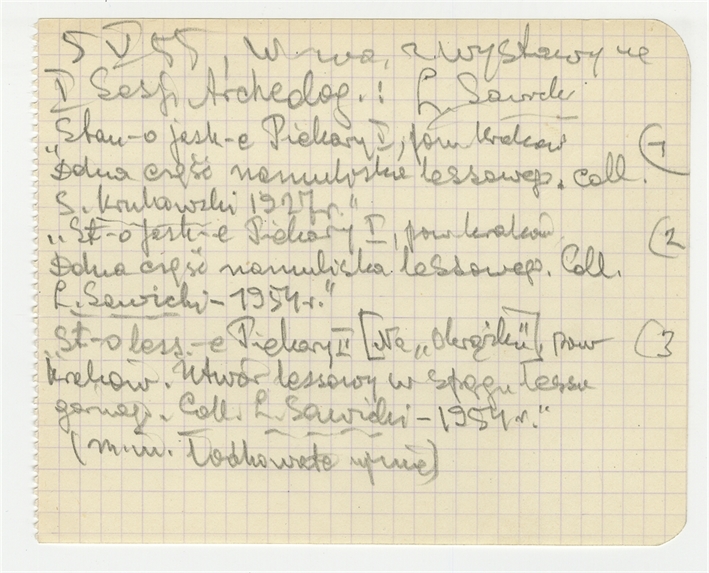 5 V 55, W-wa, z wystawy na
I Sesji Archeolog.: L. Sawicki
"Stan-o jask-e Piekary I, pow. Kraków (1
Dolna część namuliska lessowego. Coll.
S. Krukowski 1927 r."
"St-o jask-e Piekary I, pow. Kraków (2
Dolna część namuliska lessowego. Coll.
L. Sawicki – 1954 r."
St-o less.-e Piekary II [Na „Okrążku"], pow. (3
Kraków. Utwór lessowy w spągu lessu
górnego. Coll. L. Sawicki – 1954 r."
(m.in.